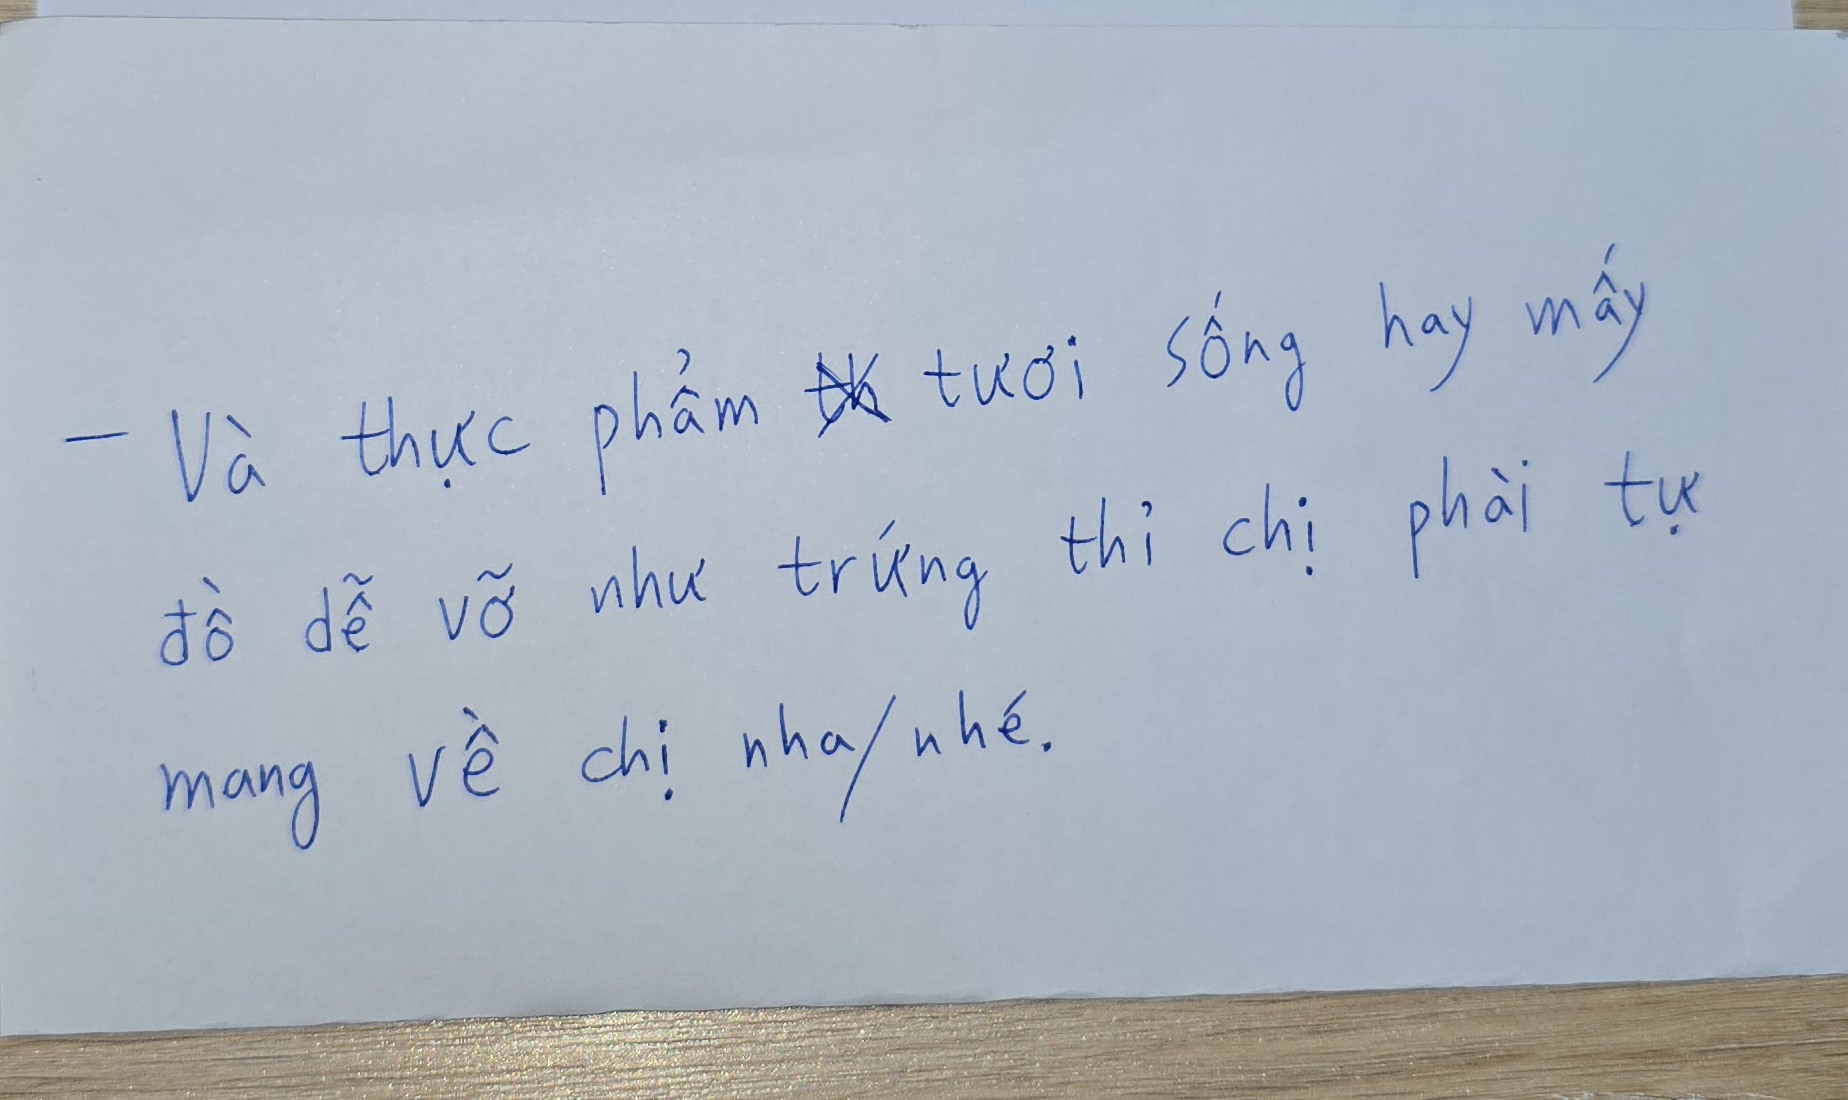 - Và thực phẩm tươi sống hay mấy
đồ dễ vỡ như trứng thỉ chị phài tự
mang về chị nha/nhé.